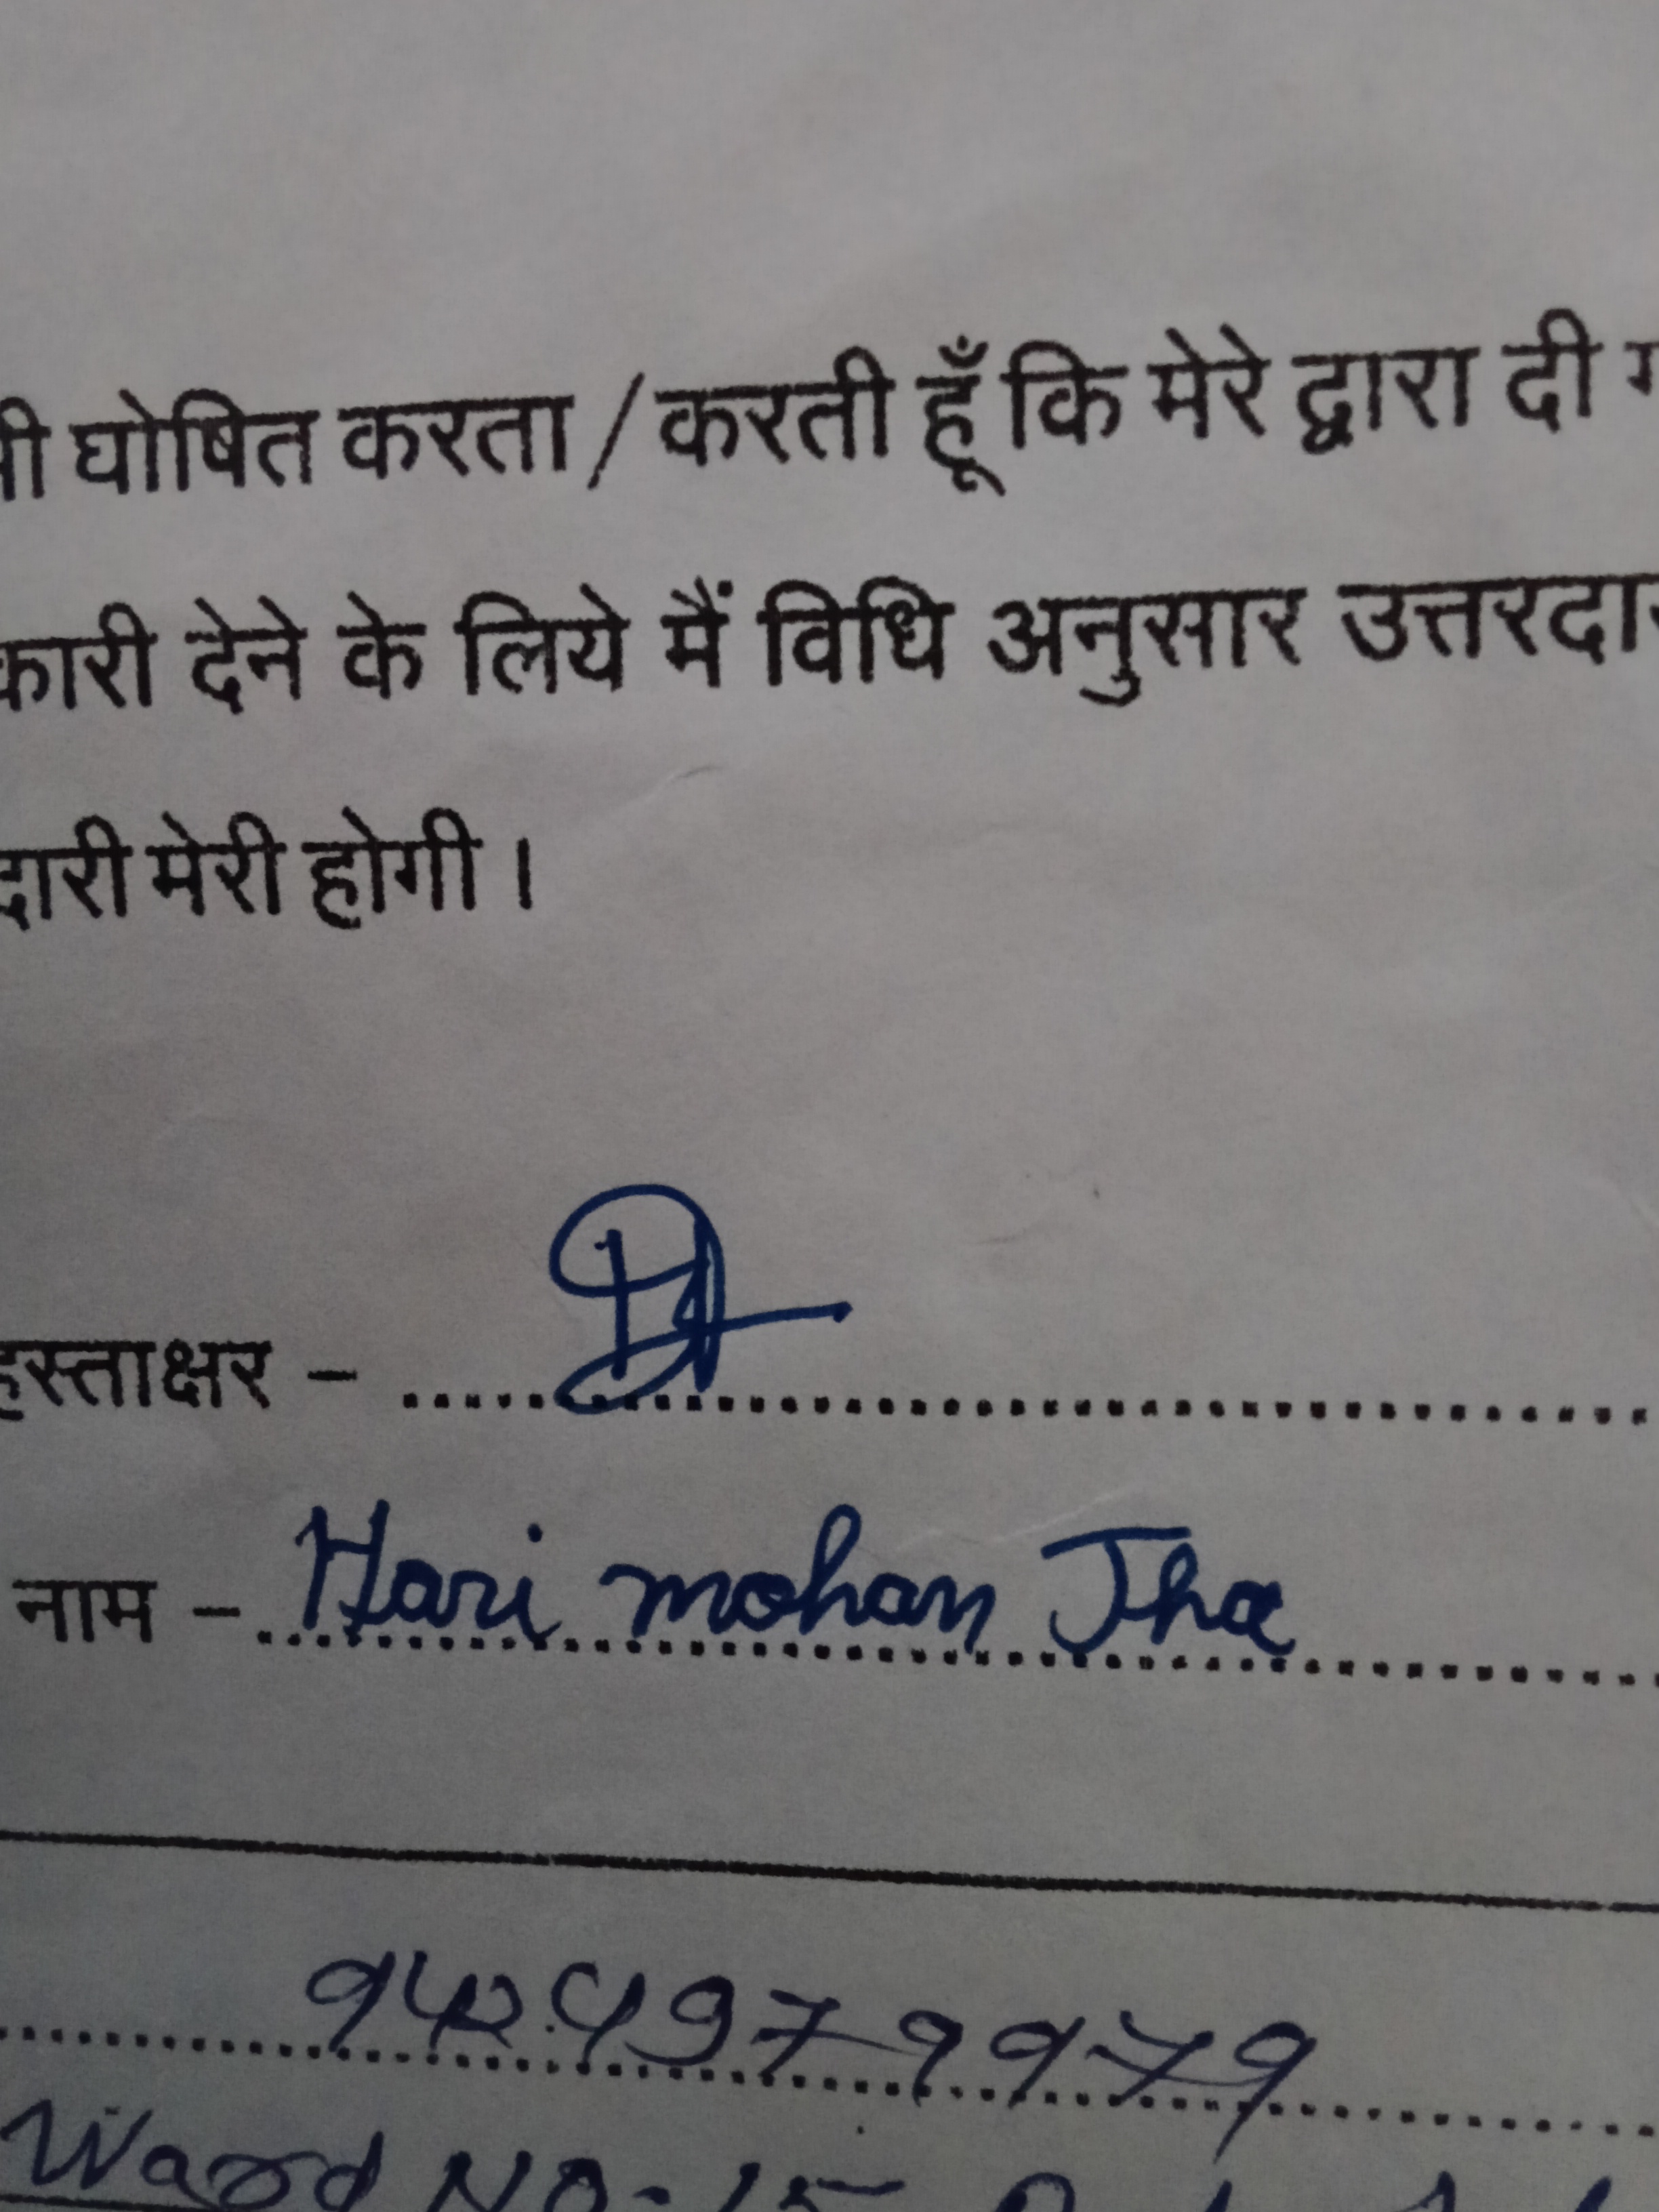 घोषित करता / करती हूँ कि मेरे द्वारा दी
कारी देने के लिये मैं विधि अनुसार उत्तरदा
दारी मेरी होगी ।
हस्ताक्षर -
नाम - Hari mohan Jha
Ward No- 15